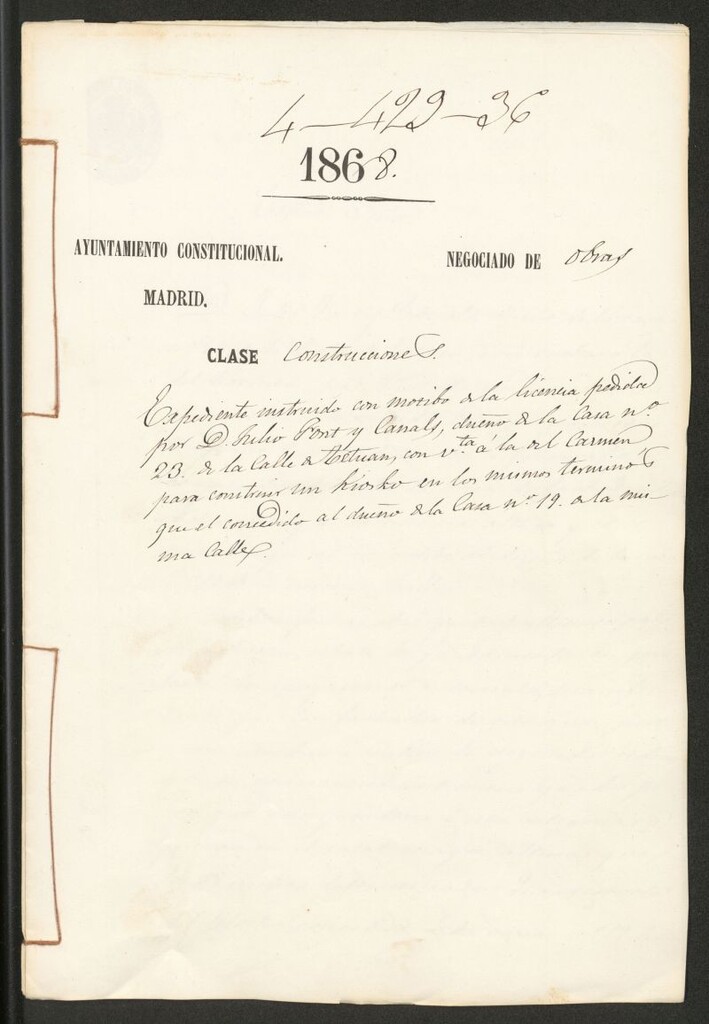 4-429-36
1868.
AYUNTAMIENTO CONSTITUCIONAL.
NEGOCIADO DE Obras
MADRID.
CLASE Construcciones.
Expediente instruido con motibo de la licencia pedida
por D. Julio Font y Canals, dueño de la Casa nº
23. de la Calle de Tetuan, con v.ta á la del Carmen
para construir un Kiosko en los mismos terminos
que el concedido al dueño de la Casa nº 19. de la mis
ma Calle.